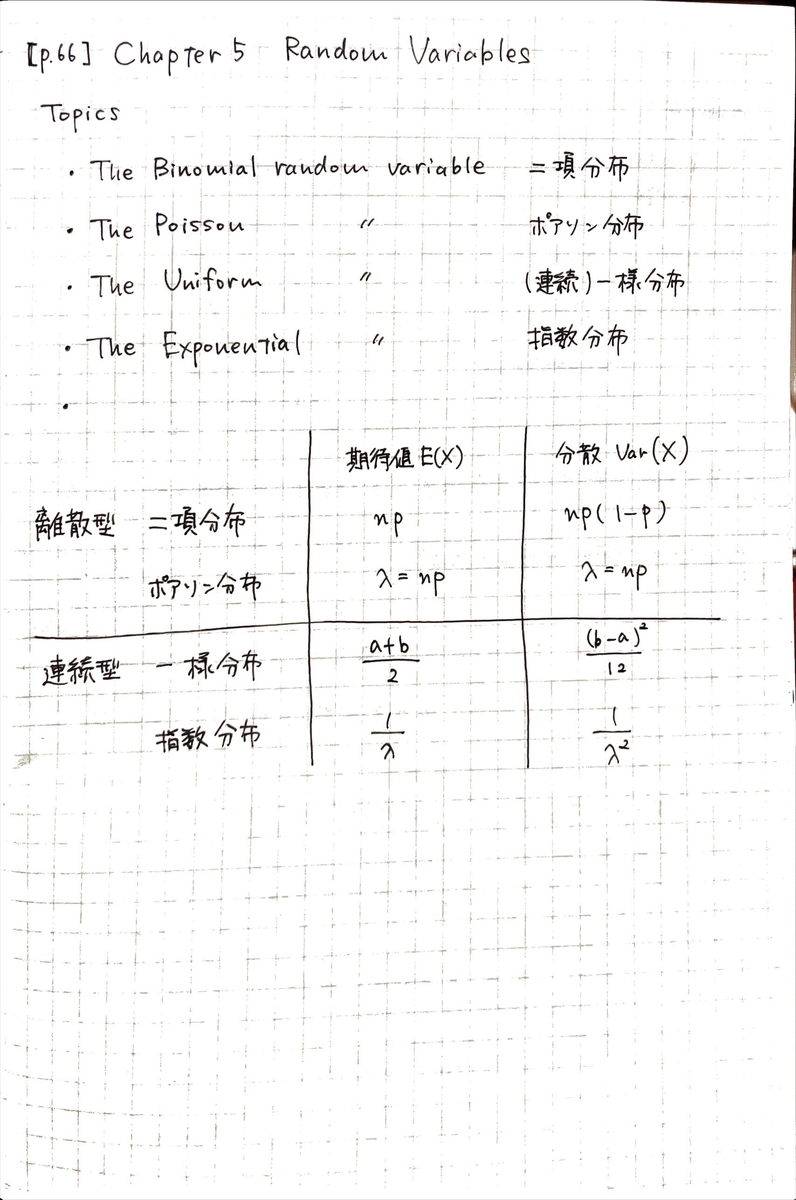 [p.66] Chapter 5 Random Variables
Topics
・The Binomial random variable 二項分布
・The Poisson 〃 ポアソン分布
・The Uniform 〃 (連続)一様分布
・The Exponential 〃 指数分布
・
期待値 E(X) 分散 Var(X)
離散型 二項分布 np np(1-p)
ポアソン分布 λ = np λ = np
連続型 一様分布 (a+b)/2 (b-a)²/12
指数分布 1/λ 1/λ²